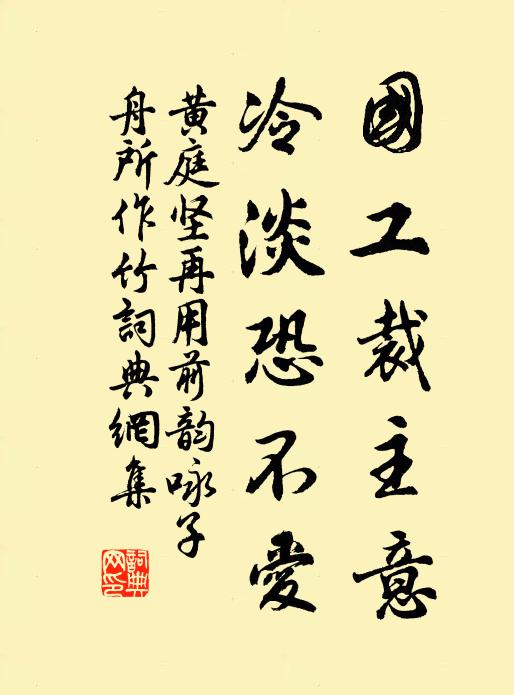 國工裁主意
冷淡恐不愛
黄庭坚再用前韵咏子
舟所作竹詞典網集
詞典網印